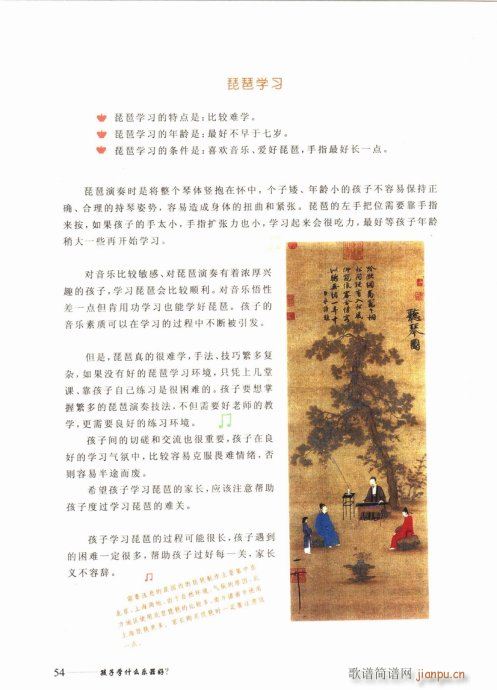 琵琶学习
琵琶学习的特点是:比较难学。
琵琶学习的年龄是:最好不早于七岁。
琵琶学习的条件是:喜欢音乐、爱好琵琶,手指最好长一点。
琵琶演奏时是将整个琴体竖抱在怀中,个子矮、年龄小的孩子不容易保持正
确、合理的持琴姿势,容易造成身体的扭曲和紧张。琵琶的左手把位需要靠手指
来按,如果孩子的手太小,手指扩张力也小,学习起来会很吃力,最好等孩子年龄
稍大一些再开始学习。
对音乐比较敏感、对琵琶演奏有着浓厚兴
趣的孩子,学习琵琶会比较顺利。对音乐悟性
差一点但肯用功学习也能学好琵琶。孩子的
音乐素质可以在学习的过程中不断被引发。
但是,琵琶真的很难学,手法、技巧繁多复
杂,如果没有好的琵琶学习环境,只凭上几堂
课、靠孩子自己练习是很困难的。孩子要想掌
握繁多的琵琶演奏技法,不但需要好老师的教
学,更需要良好的练习环境。
孩子间的切磋和交流也很重要,孩子在良
好的学习气氛中,比较容易克服畏难情绪,否
则容易半途而废。
希望孩子学习琵琶的家长,应该注意帮助
孩子度过学习琵琶的难关。
孩子学习琵琶的过程可能很长,孩子遇到
的困难一定很多,帮助孩子过好每一关,家长
义不容辞。
聽琴圖
54
孩子学什么乐器好?
歌谱简谱网
jianpu.cn